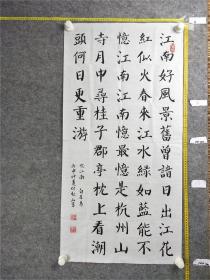 江南好風景舊曾諳日出江花
紅似火春來江水綠如藍能不
憶江南江南憶最憶是杭州山
寺月中尋桂子郡亭枕上看潮
頭何日更重游
憶江南 白居易